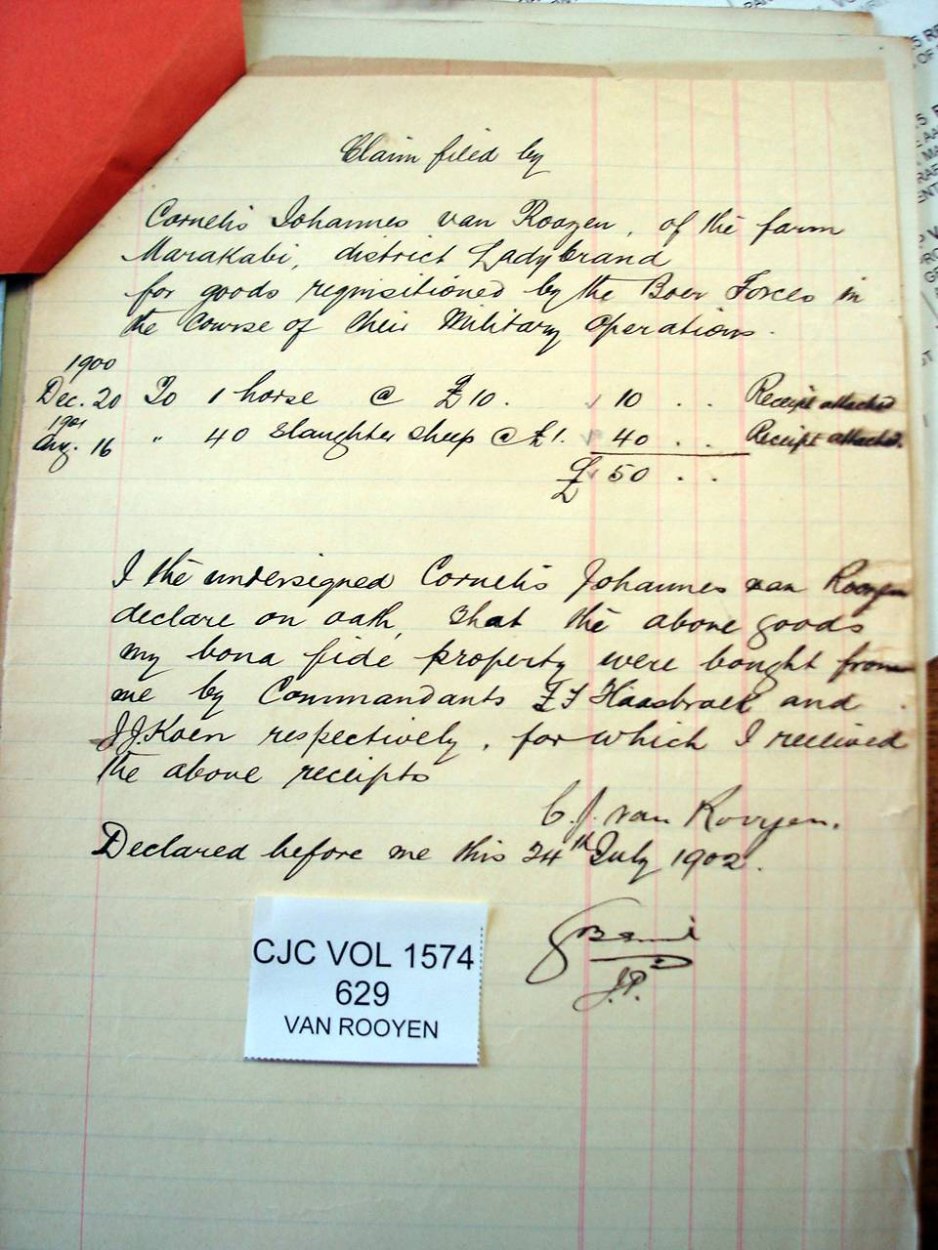 Claim filed by
Cornelis Johannes van Rooyen, of the farm
Marakabi, district Ladybrand
for goods requisitioned by the Boer Forces in
the course of their Military Operations.
1900
Dec. 20 To 1 horse @ £10. 10 . . Receipt attached
1901
Aug. 16 " 40 Slaughter sheep @ £1. 40 . . Receipt attached.
£ 50 . .
I the undersigned Cornelis Johannes van Rooyen
declare on oath, that the above goods
my bona fide property were bought from
me by Commandants FF Haasbroek and
J.J. Koen respectively, for which I received
the above receipts
C. J. van Rooyen.
Declared before me this 24th July 1902.
J.P.
CJC VOL 1574
629
VAN ROOYEN